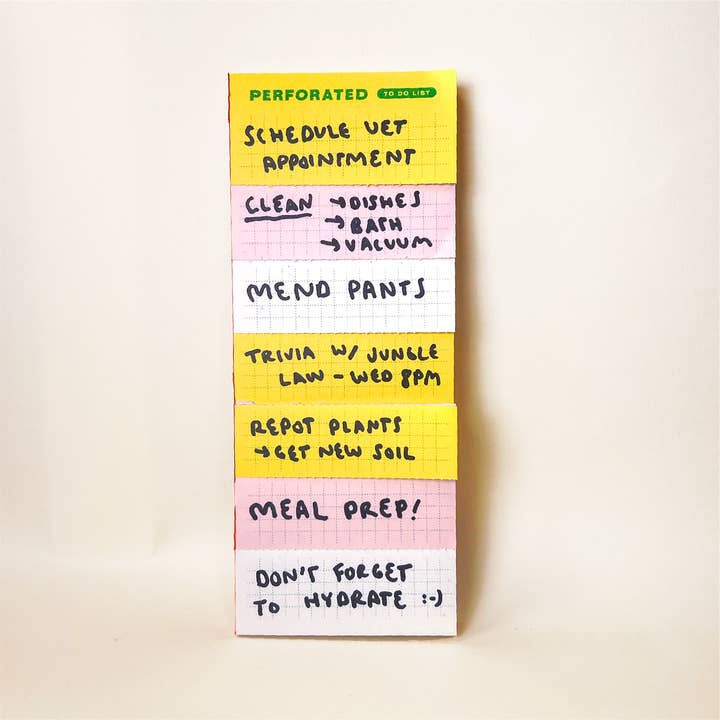 PERFORATED TO DO LIST
SCHEDULE VET
APPOINTMENT
CLEAN →DISHES
→BATH
→VACUUM
MEND PANTS
TRIVIA W/ JUNGLE
LAW - WED 8PM
REPOT PLANTS
→GET NEW SOIL
MEAL PREP!
DON'T FORGET
TO HYDRATE :-)